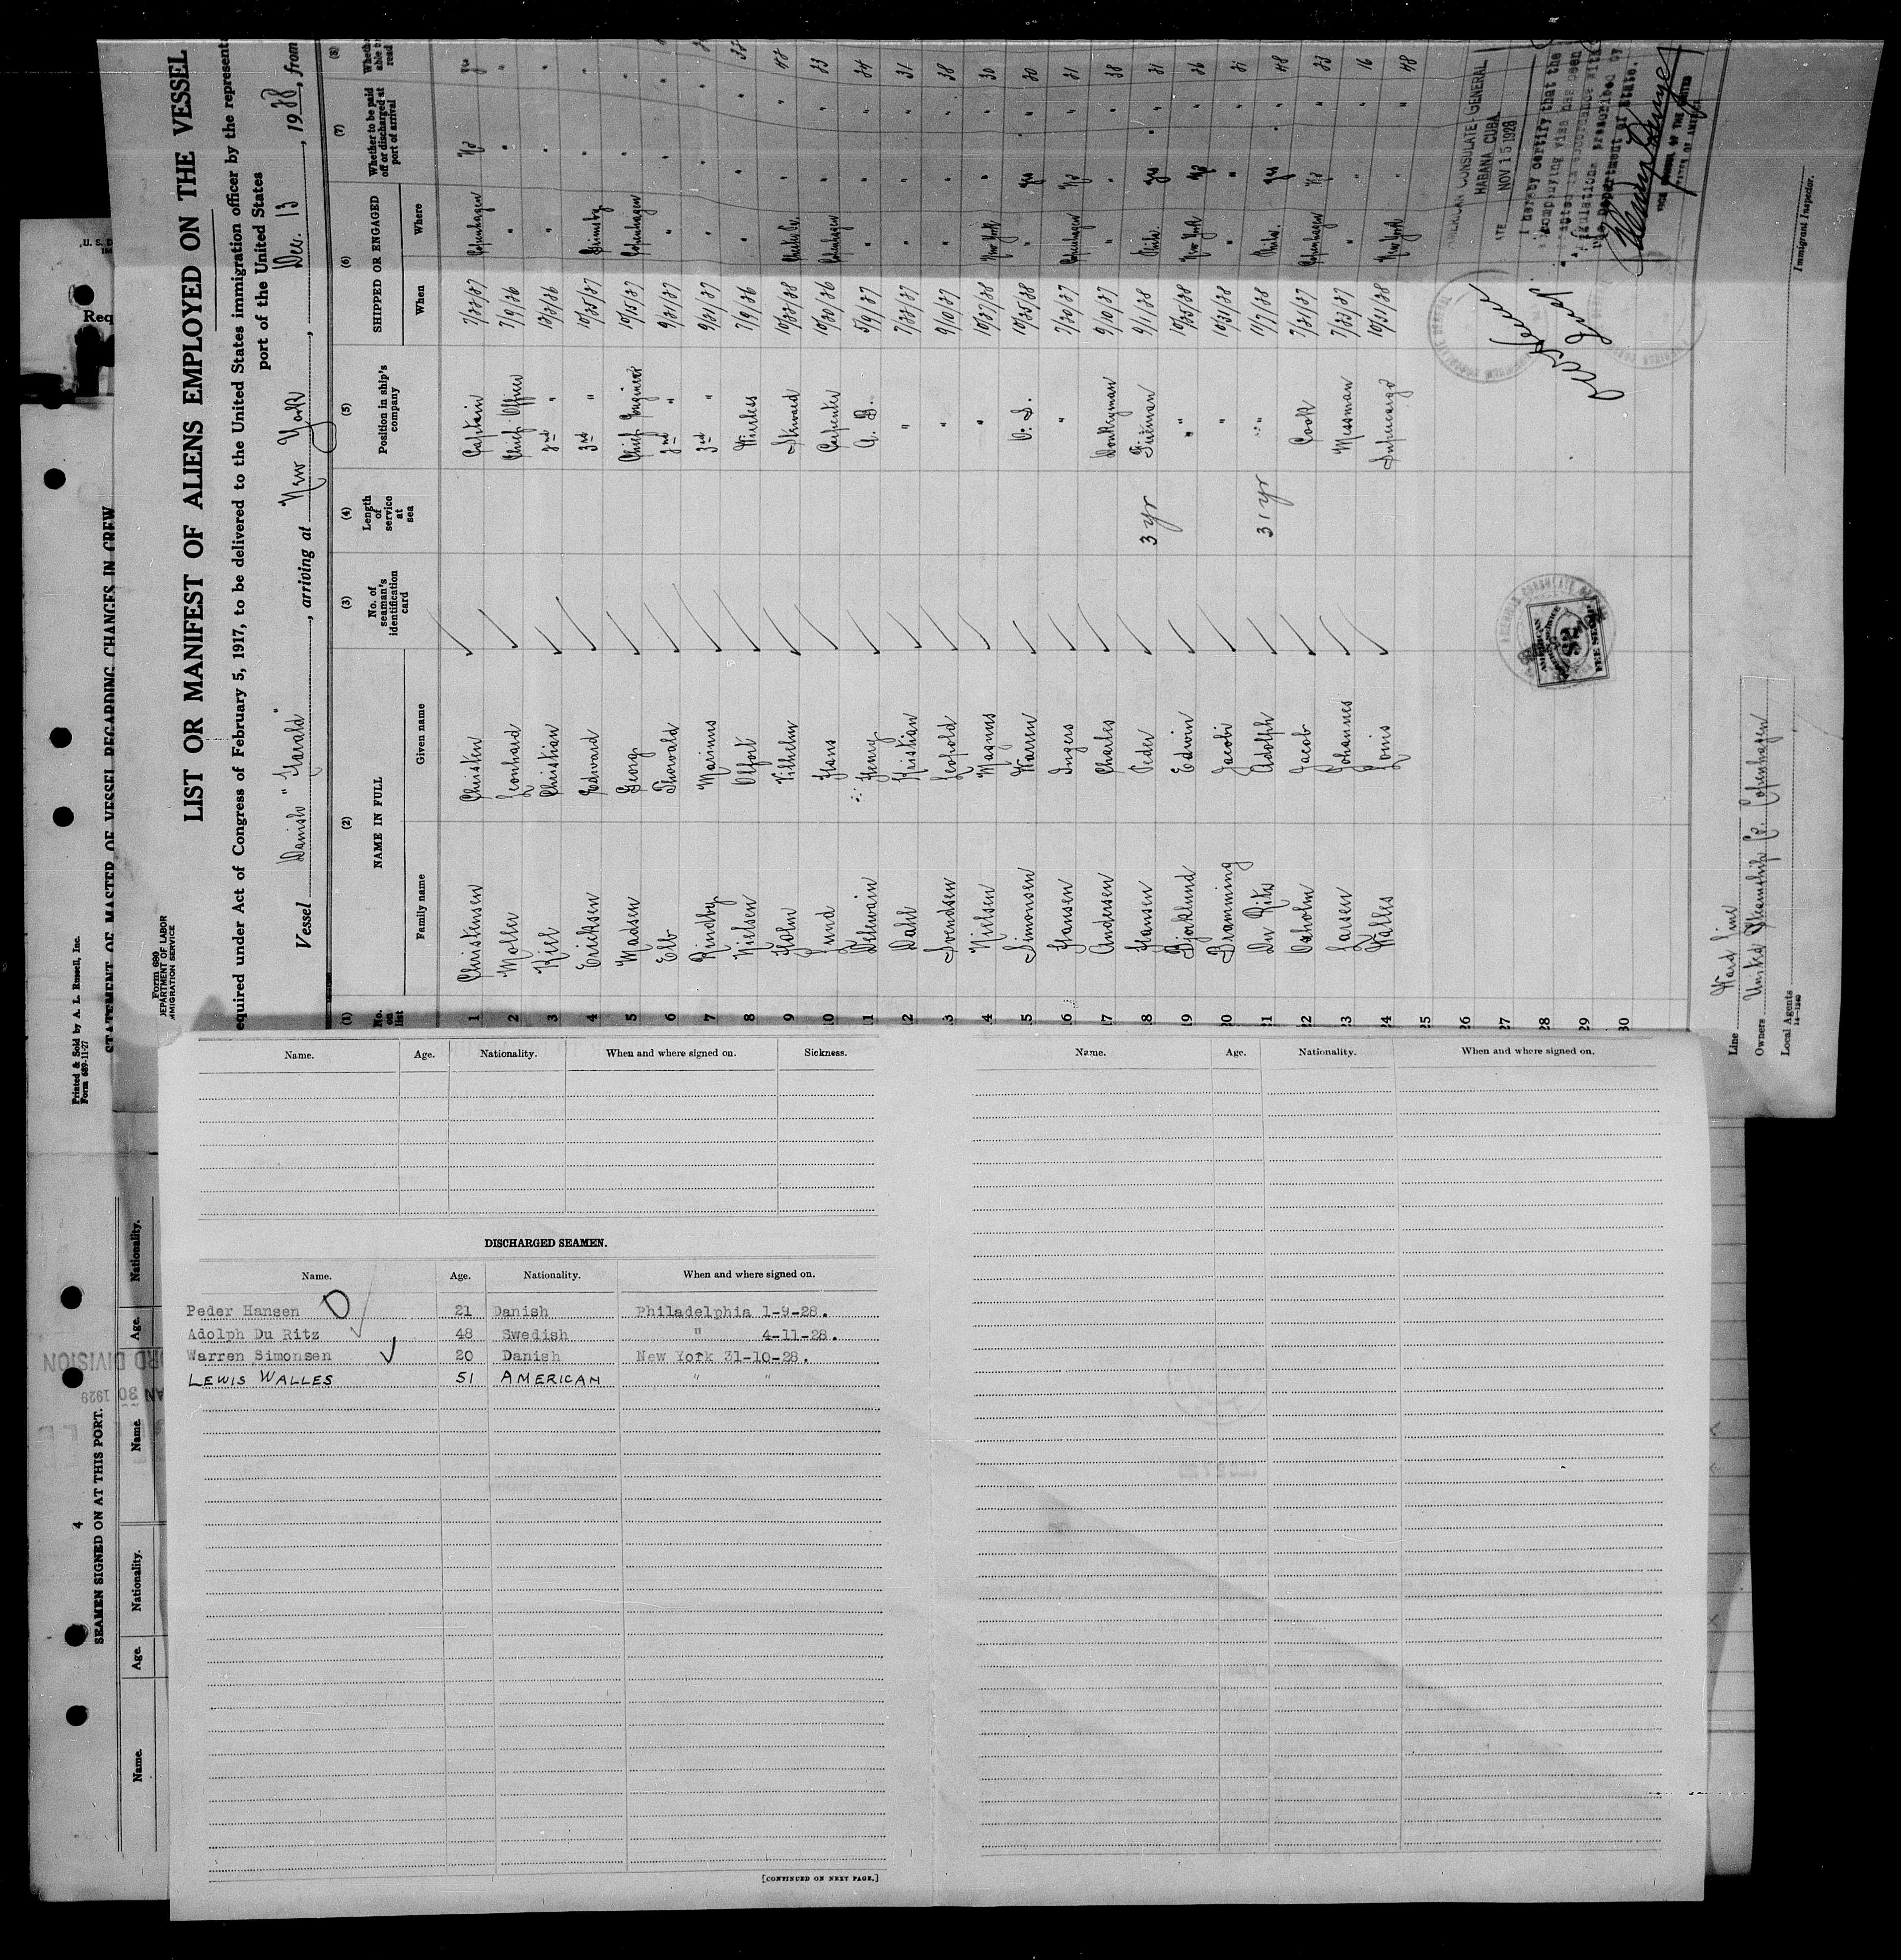 U. S. D
Req
Printed & Sold by A. L. Russell, Inc.
Form 689-11-27
STATEMENT OF MASTER OF VESSEL REGARDING CHANGES IN CREW
Form 680
DEPARTMENT OF LABOR
IMMIGRATION SERVICE
LIST OR MANIFEST OF ALIENS EMPLOYED ON THE VESSEL
equired under Act of Congress of February 5, 1917, to be delivered to the United States immigration officer by the represent
port of the United States
Vessel Danish "Harald", arriving at New York, Dec. 13, 1928, from
(1) (2) (3) (4) (5) (6) (7) (8)
No. on list NAME IN FULL No. of seaman's identification card Length of service at sea Position in ship's company SHIPPED OR ENGAGED Whether to be paid off or discharged at port of arrival Whethe able t read
Family name Given name When Where
1 Christensen Christen Captain 7/22/27 Copenhagen No yes
2 Moller Leonhard Chief Officer 7/9/26 " " "
3 Kiel Christian 2nd " 12/2/26 " " "
4 Ericksen Edward 3rd " 10/25/27 Grimsby " "
5 Madsen Georg Chief Engineer 10/15/27 Copenhagen " "
6 Elb Thorvald 2nd " 9/21/27 " "
7 Rindby Marinus 3rd " 9/21/27 " "
8 Nielsen Olfert Wireless 7/9/26 " "
9 Holm Vilhelm Steward 10/22/28 " 48
10 Lund Hans Carpenter 10/20/26 Copenhagen " 23
11 Henry A. B. 5/9/27 " " 24
12 Dahl Kristian " 7/22/27 " " 31
13 Svendsen Leopold " 9/10/27 " " 28
14 Nielsen Magnus " 10/27/28 New York " 20
15 Simonsen Warren O. S. 10/25/28 " yes " 20
16 Hansen Ingers " 7/20/27 Copenhagen No " 21
17 Andersen Charles Donkeyman 9/10/27 " " " 38
18 Hansen Peder 3 yr Fireman 9/1/28 Phila. yes " 21
19 Bjorklund Edwin " 10/25/28 New York No " 26
20 Bramming Jacobi " 10/31/28 " " " 21
21 Du Rits Adolph 31 yr " 11/7/28 Phila. yes " 48
22 Oxholm Jacob Cook 7/21/27 Copenhagen No " 23
23 Larsen Johannes Messman 7/22/27 " " " 16
24 Walles Louis Supercargo 10/31/28 New York " " 48
25
26
27
28
29
30
AMERICAN CONSULATE-GENERAL
HABANA, CUBA
DATE NOV 15 1928
I hereby certify that the
accompanying visa has been
granted in accordance with
regulations prescribed by
the Department of State.
VICE CONSUL OF THE UNITED
STATES OF AMERICA
AMERICAN
FEE STAMP
Immigrant Inspector.
Line Ward Line
Owners United Steamship Co. Copenhagen
Local Agents
14-1240
Name. Age. Nationality. When and where signed on. Sickness.
DISCHARGED SEAMEN.
Name. Age. Nationality. When and where signed on.
Peder Hansen 21 Danish Philadelphia 1-9-28.
Adolph Du Ritz 48 Swedish " 4-11-28.
Warren Simonsen 20 Danish New York 31-10-28.
LEWIS WALLES 51 AMERICAN " "
[CONTINUED ON NEXT PAGE.]
Name. Age. Nationality. When and where signed on.
4
SEAMEN SIGNED ON AT THIS PORT.
Name. Age. Nationality. Name. Age. Nationality.